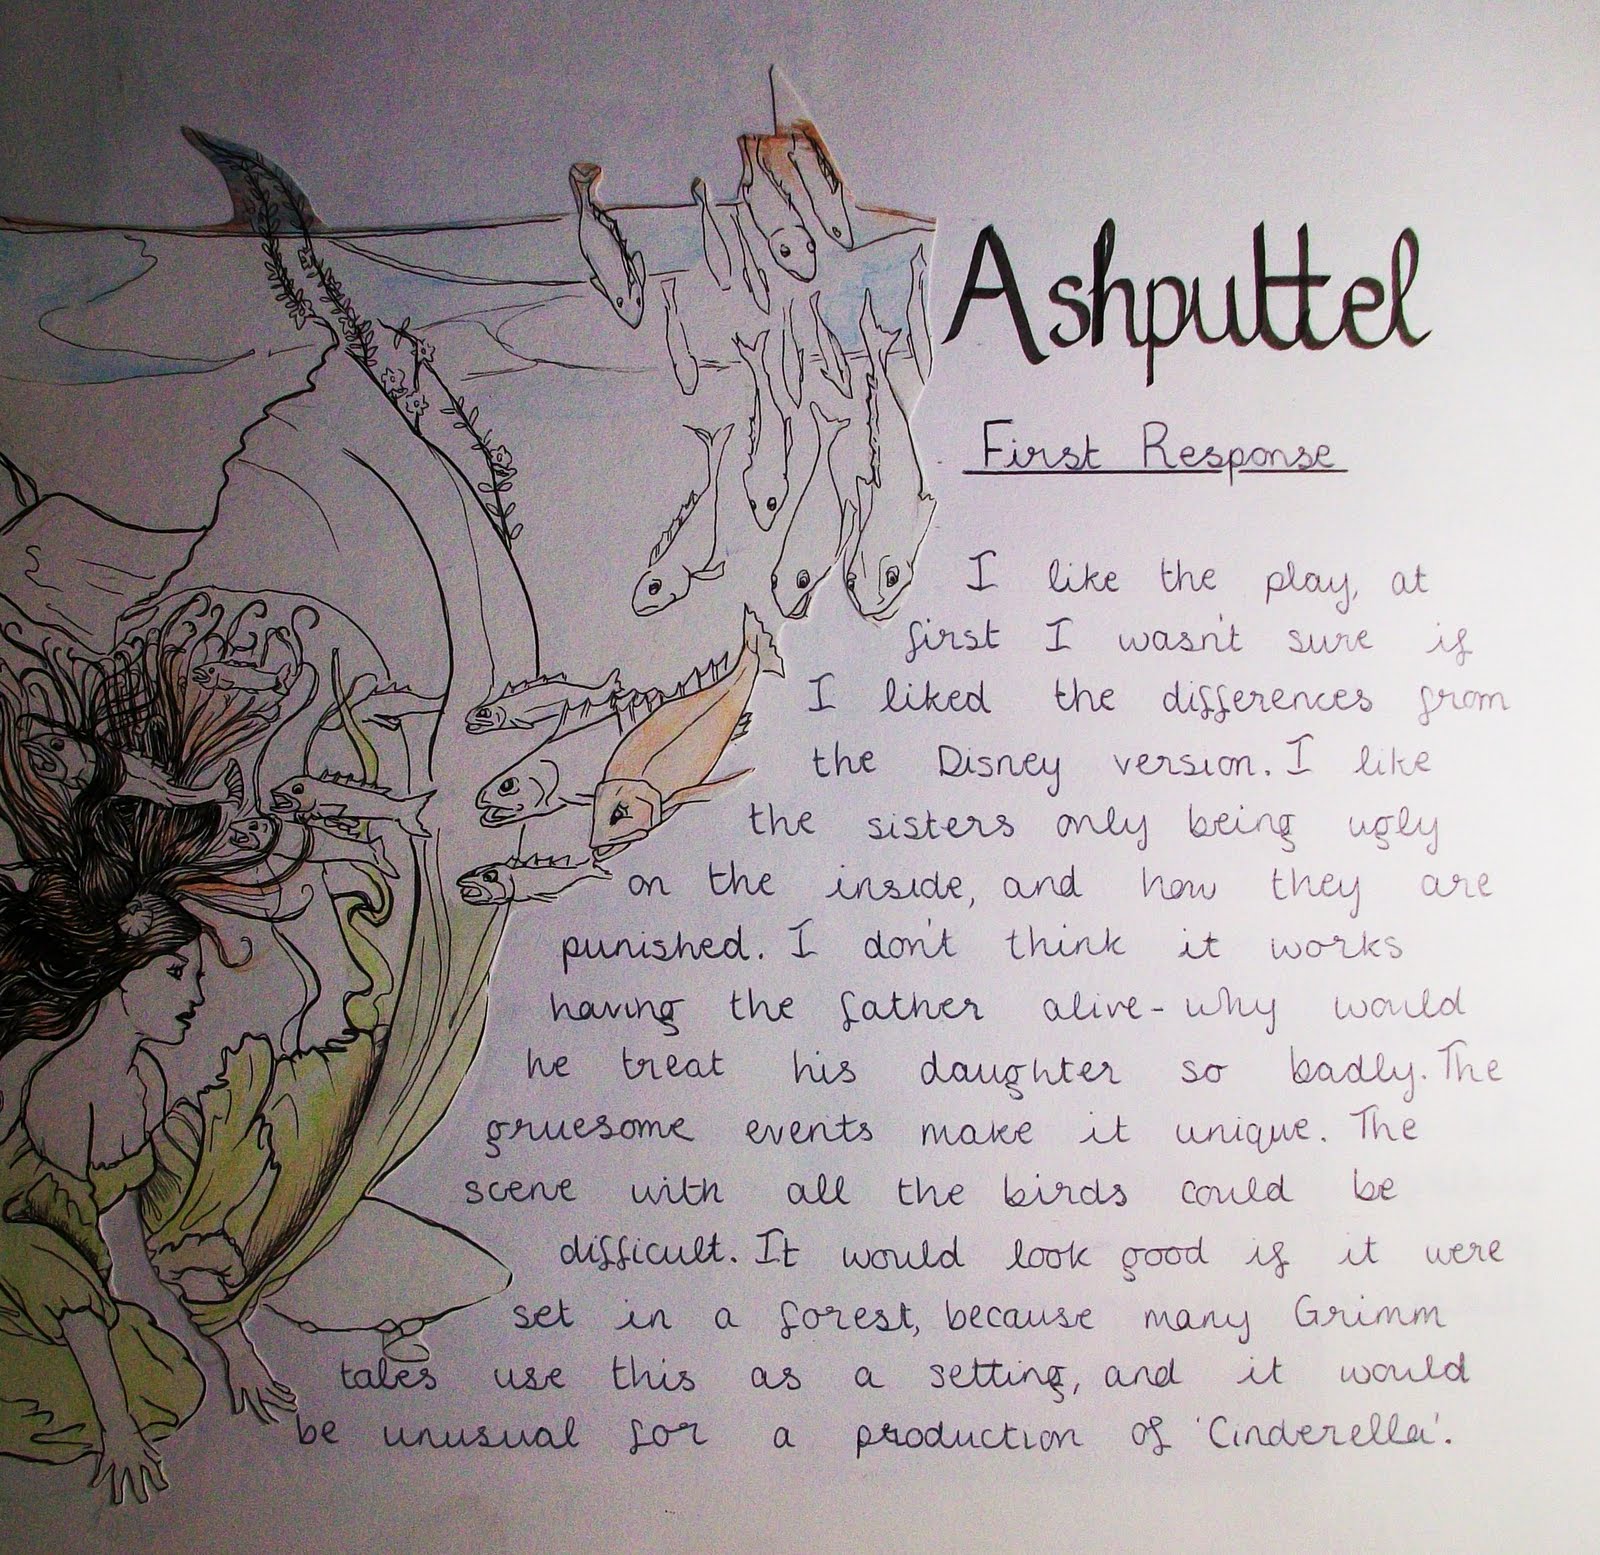 Ashputtel
First Response
I like the play, at
first I wasn't sure if
I liked the differences from
the Disney version. I like
the sisters only being ugly
on the inside, and how they are
punished. I don't think it works
having the father alive - why would
he treat his daughter so badly. The
gruesome events make it unique. The
scene with all the birds could be
difficult. It would look good if it were
set in a forest, because many Grimm
tales use this as a setting, and it would
be unusual for a production of 'Cinderella'.